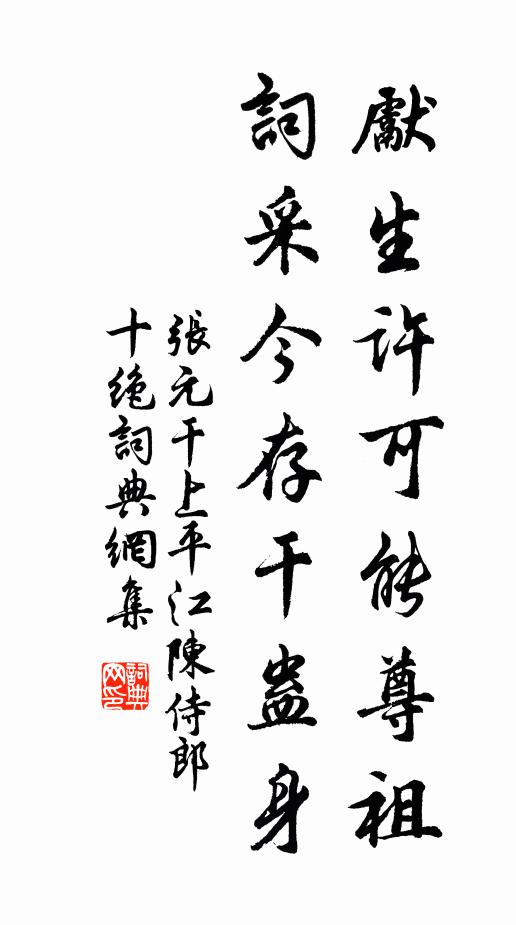 獻生許可能尊祖
詞采今存干蠱身
張元干上平江陳侍郎
十絶詞典網集
詞典網印